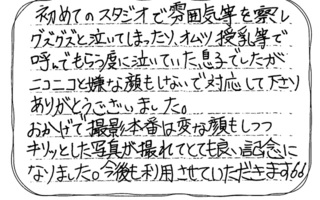 初めてのスタジオで雰囲気等を察し
グズグズと泣いてしまったり、オムツ授乳等で
呼んでもらう度に泣いていた息子でしたが
ニコニコと嫌な顔もしないで対応して下さり
ありがとうございました。
おかげで撮影本番は変な顔もしつつ
キリッとした写真が撮れてとても良い記念に
なりました。今後も利用させていただきます